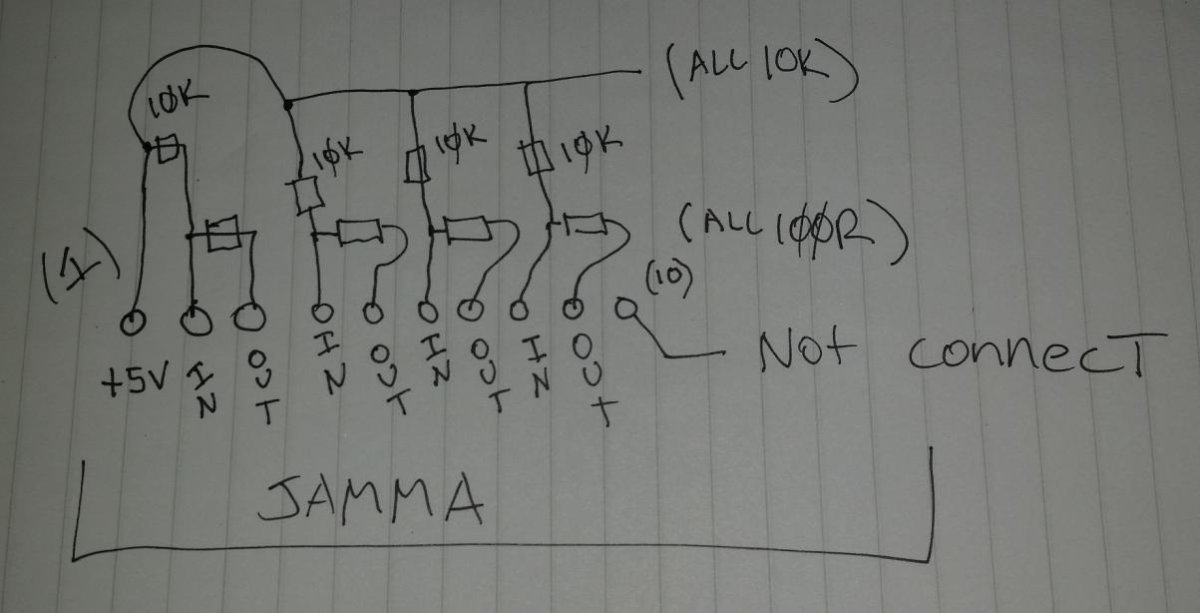 10K
(ALL 10K)
10K
10K
10K
(1)
(ALL 100R)
(10)
+5V
IN
OUT
IN
OUT
IN
OUT
IN
OUT
Not connecT
JAMMA